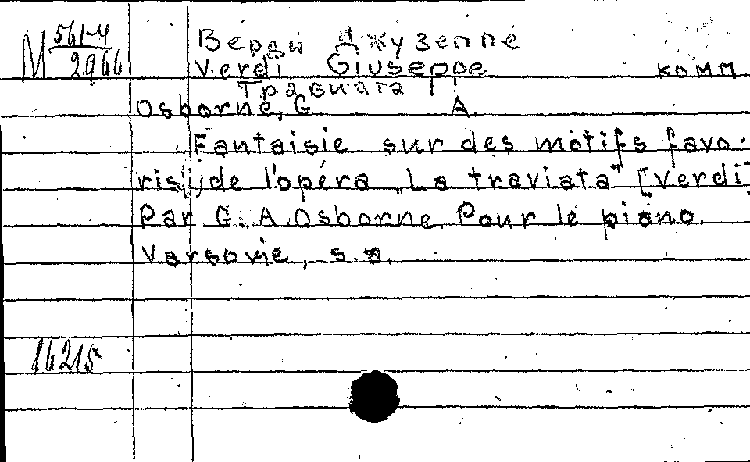 М 561-4
2966
Верди Джузеппе
Verdi Giuseppe комм.
Травиата
Osborne, G. A.
Fantaisie sur des motifs favo-
ris[!]de l'opéra „La traviata" [Verdi]
Par G. A. Osborne. Pour le piano.
Varsovie, s.a.
16215